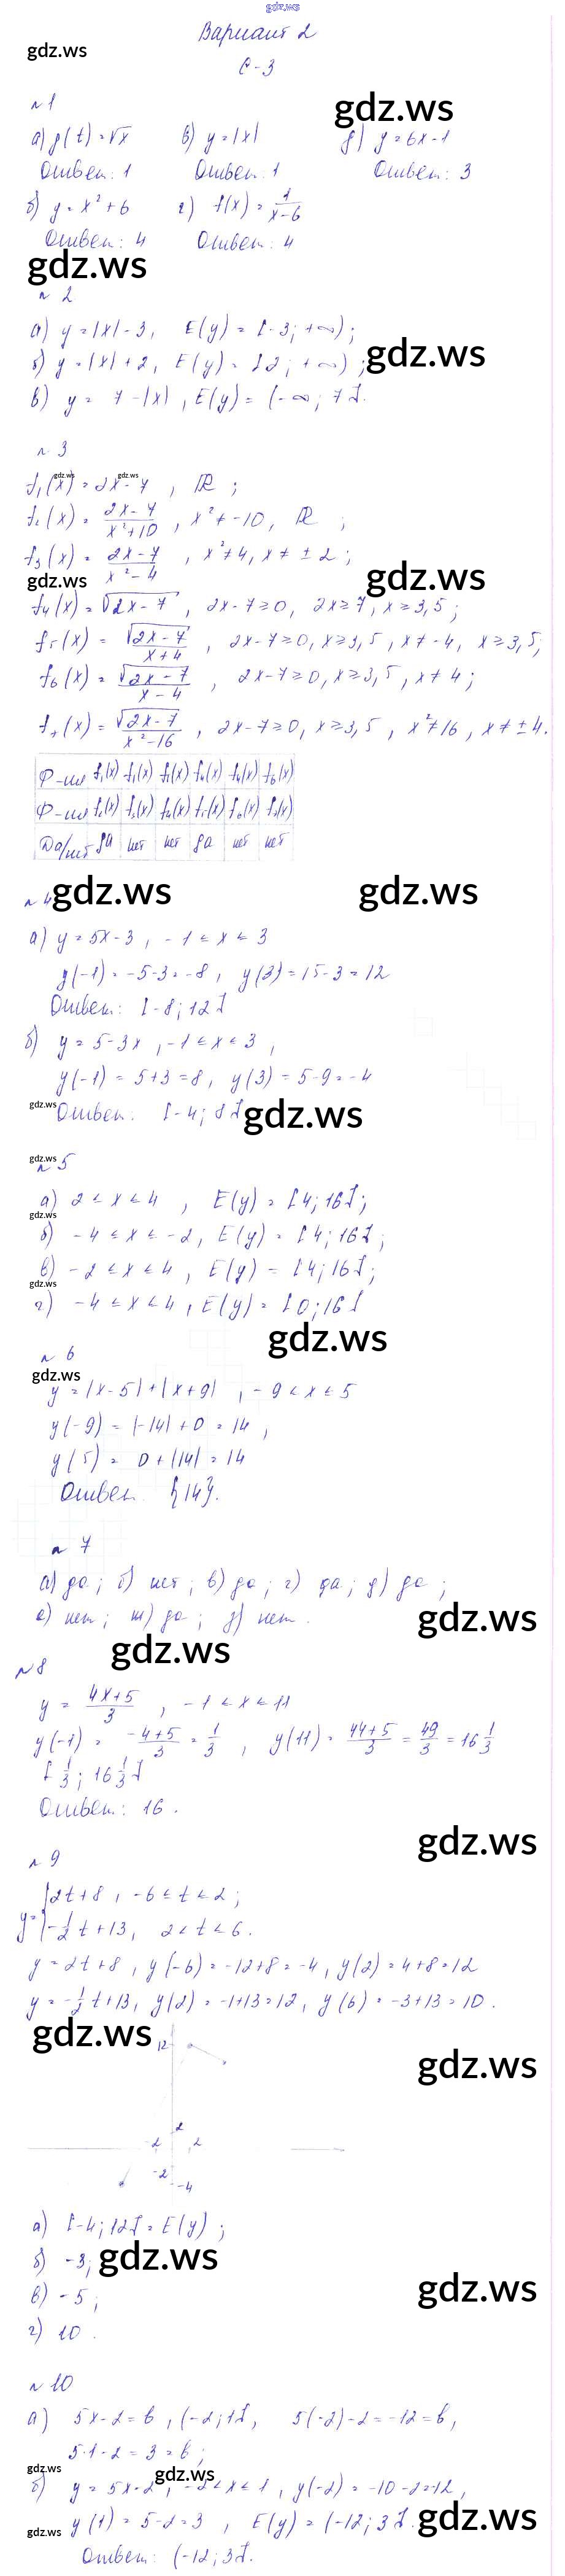 gdz.ws
Вариант 2
gdz.ws
С-3
№1
gdz.ws
а) g(t) = √x в) y = |x| д) y = 6x-1
Ответ: 1 Ответ: 1 Ответ: 3
б) y = x² + 6 г) f(x) = 1/(x-6)
Ответ: 4 Ответ: 4
gdz.ws
№ 2
а) y = |x| - 3, E(y) = [-3; +∞);
gdz.ws
б) y = |x| + 2, E(y) = [2; +∞);
в) y = 7 - |x|, E(y) = (-∞; 7].
№ 3
gdz.ws gdz.ws
f₁(x) = 2x - 7, ℝ;
f₂(x) = (2x-7)/(x²+10), x² ≠ -10, ℝ;
f₃(x) = (2x-7)/(x²-4), x² ≠ 4, x ≠ ±2;
gdz.ws gdz.ws
f₄(x) = √(2x-7), 2x-7 ≥ 0, 2x ≥ 7, x ≥ 3,5;
f₅(x) = √(2x-7)/(x+4), 2x-7 ≥ 0, x ≥ 3,5, x ≠ -4, x ≥ 3,5;
f₆(x) = √(2x-7)/(x-4), 2x-7 ≥ 0, x ≥ 3,5, x ≠ 4;
f₇(x) = √(2x-7)/(x²-16), 2x-7 ≥ 0, x ≥ 3,5, x² ≠ 16, x ≠ ±4.
Ф-ия f₁(x) f₁(x) f₁(x) f₄(x) f₄(x) f₆(x)
Ф-ия f₂(x) f₃(x) f₄(x) f₅(x) f₆(x) f₇(x)
Да/нет да нет нет да нет нет
gdz.ws gdz.ws
№ 4
а) y = 5x-3, -1 ≤ x ≤ 3
y(-1) = -5-3 = -8, y(3) = 15-3 = 12
Ответ: [-8; 12]
б) y = 5-3x, -1 ≤ x ≤ 3,
y(-1) = 5+3 = 8, y(3) = 5-9 = -4
gdz.ws
Ответ: [-4; 8]
gdz.ws
gdz.ws
№ 5
а) 2 ≤ x ≤ 4, E(y) = [4; 16];
gdz.ws
б) -4 ≤ x ≤ -2, E(y) = [4; 16];
в) -2 ≤ x ≤ 4, E(y) = [4; 16];
gdz.ws
г) -4 ≤ x ≤ 4, E(y) = [0; 16]
gdz.ws
№ 6
gdz.ws
y = |x-5| + |x+9|, -9 ≤ x ≤ 5
y(-9) = |-14| + 0 = 14,
y(5) = 0 + |14| = 14
Ответ {14}.
№ 7
а) да; б) нет; в) да; г) да; д) да;
gdz.ws
е) нет; ж) да; з) нет.
gdz.ws
№8
y = (4x+5)/3, -1 ≤ x ≤ 11
y(-1) = (-4+5)/3 = 1/3, y(11) = (44+5)/3 = 49/3 = 16 1/3
[1/3; 16 1/3]
Ответ: 16.
gdz.ws
№ 9
y = { 2t+8, -6 ≤ t ≤ 2;
-1/2 t + 13, 2 < t ≤ 6.
y = 2t+8, y(-6) = -12+8 = -4, y(2) = 4+8 = 12
y = -1/2 t+13, y(2) = -1+13 = 12, y(6) = -3+13 = 10.
gdz.ws
12
gdz.ws
2
-2 2
-2
-4
а) [-4; 12] = E(y);
б) -3;
gdz.ws
gdz.ws
в) -5;
г) 10.
№ 10
а) 5x-2 = b, (-2; 1], 5(-2)-2 = -12 = b,
5·1-2 = 3 = b;
gdz.ws
gdz.ws
б) y = 5x-2, -2 < x ≤ 1, y(-2) = -10-2 = -12,
gdz.ws
y(1) = 5-2 = 3, E(y) = (-12; 3].
gdz.ws
Ответ: (-12; 3].